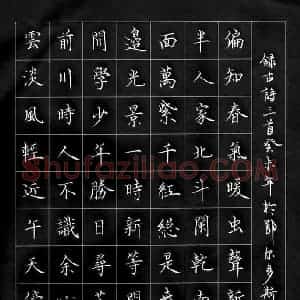 雲淡風輕近午天
前川時人不識余
間學少年勝日尋
邊光景一時新等
面萬紫千紅總是
半人家北斗闌乾
偏知春氣暖虫聲
録古詩三首癸未年於鄂尔多斯
Shufaziliao.com